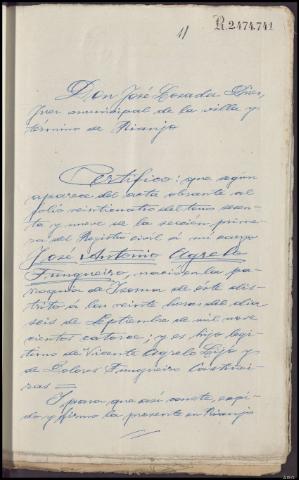 11
R.2474.741
Don José Losada Dios,
Juez municipal de la villa y
término de Rianjo
Certifico: que según
aparece del acta obrante al
folio veintiocho del tomo
y nueve de la sección prime
ra del Registro civil á mi cargo
José Antonio Agrelo
Fungueiro, nació en la pa
rroquia de Isorna de éste dis
trito á las veinte horas del dia
seis de Septiembre de mil nove
cientos catorce; y es hijo legí
timo de Vicente Agrelo Lijo y
de Dolores Fungueiro Castiñei
ras =
Y para que así conste, expi
do y firmo la presente en Rianjo